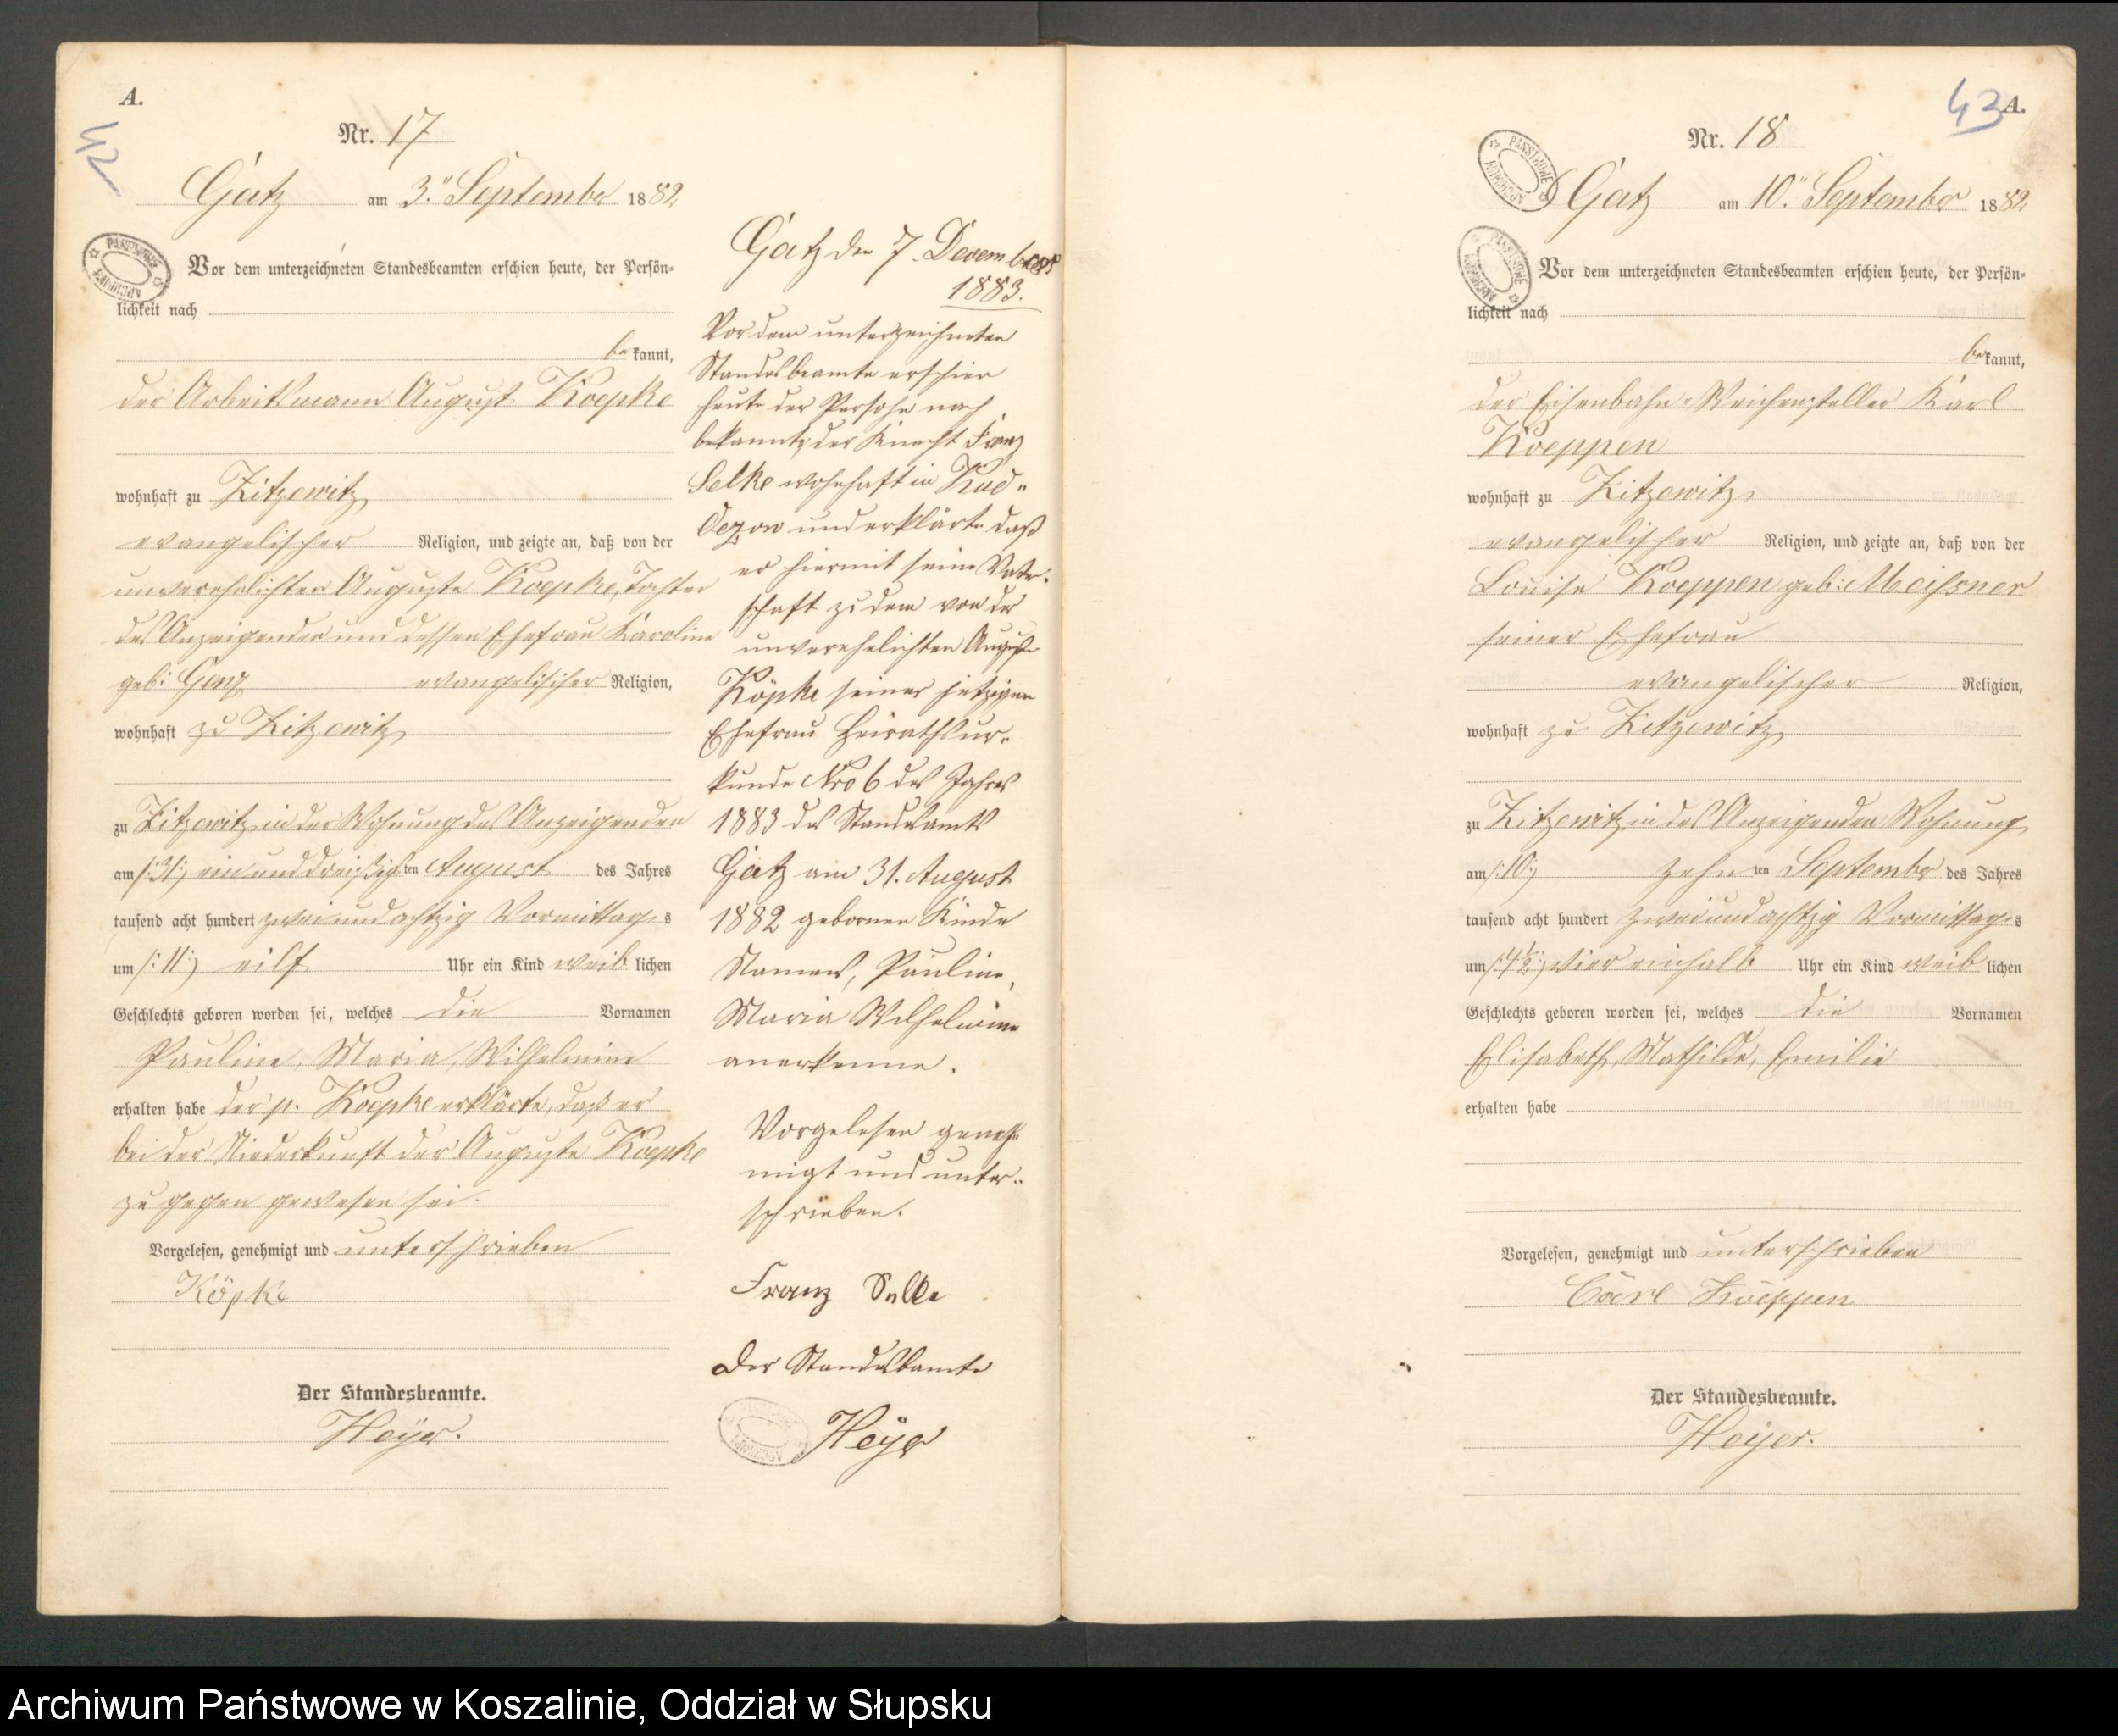 A.
42
Nr. 17
Gatz am 3.ⁿ September 1882
PAŃSTWOWE ARCHIWUM
Vor dem unterzeichneten Standesbeamten erschien heute, der Persön-
lichkeit nach
be kannt,
der Arbeitsmann August Koepke
wohnhaft zu Zitzewitz
evangelischer Religion, und zeigte an, daß von der
unverehelichten Auguste Koepke, Tochter
des Anzeigenden und dessen Ehefrau Karoline
geb: Genz evangelischer Religion,
wohnhaft zu Zitzewitz
zu Zitzewitz in der Wohnung des Anzeigenden
am /:31:/ ein und dreißigsten August des Jahres
tausend acht hundert zwei und achtzig Vormittags
um /:11:/ eilf Uhr ein Kind weiblichen
Geschlechts geboren worden sei, welches die Vornamen
Pauline, Maria, Wilhelmine
erhalten habe der p. Koepke erklärte, daß er
bei der Niederkunft der Auguste Koepke
zu gegen gewesen sei.
Vorgelesen, genehmigt und unterschrieben
Köpke
Der Standesbeamte.
Heyer.
Gatz den 7. Decembers
1883.
Vor dem unterzeichneten
Standesbeamte erschien
heute der Persohn nach
bekannt, der Knecht Franz
Selke wohnhaft in Kud-
Oezow und erklärte daß
er hiermit seine Vater-
schaft zu dem von der
unverehelichten Auguste
Köpke seiner jetzigen
Ehefrau Heirathsur-
kunde Nro 6 des Jahres
1883 des Standesamts
Gatz am 31. August
1882 gebornen Kinde
Namens, Pauline,
Maria Wilhelmine
anerkenne.
Vorgelesen geneh-
migt und unter-
schrieben.
Franz Selke
Der Standesbeamte
Heyer
43
A.
Nr. 18
PAŃSTWOWE ARCHIWUM
Gatz am 10.ⁿ September 1882
PAŃSTWOWE ARCHIWUM
Vor dem unterzeichneten Standesbeamten erschien heute, der Persön-
lichkeit nach
be kannt,
der Eisenbahn-Weichensteller Karl
Koeppen
wohnhaft zu Zitzewitz
evangelischer Religion, und zeigte an, daß von der
Louise Koeppen geb: Meissner
seiner Ehefrau
evangelischer Religion,
wohnhaft zu Zitzewitz
zu Zitzewitz in des Anzeigenden Wohnung
am /:10:/ zehnten September des Jahres
tausend acht hundert zwei und achtzig Vormittags
um /:4½:/ vier einhalb Uhr ein Kind weiblichen
Geschlechts geboren worden sei, welches die Vornamen
Elisabeth, Mathilde, Emilie
erhalten habe
Vorgelesen, genehmigt und unterschrieben
Carl Koeppen
Der Standesbeamte.
Heyer.
Archiwum Państwowe w Koszalinie, Oddział w Słupsku